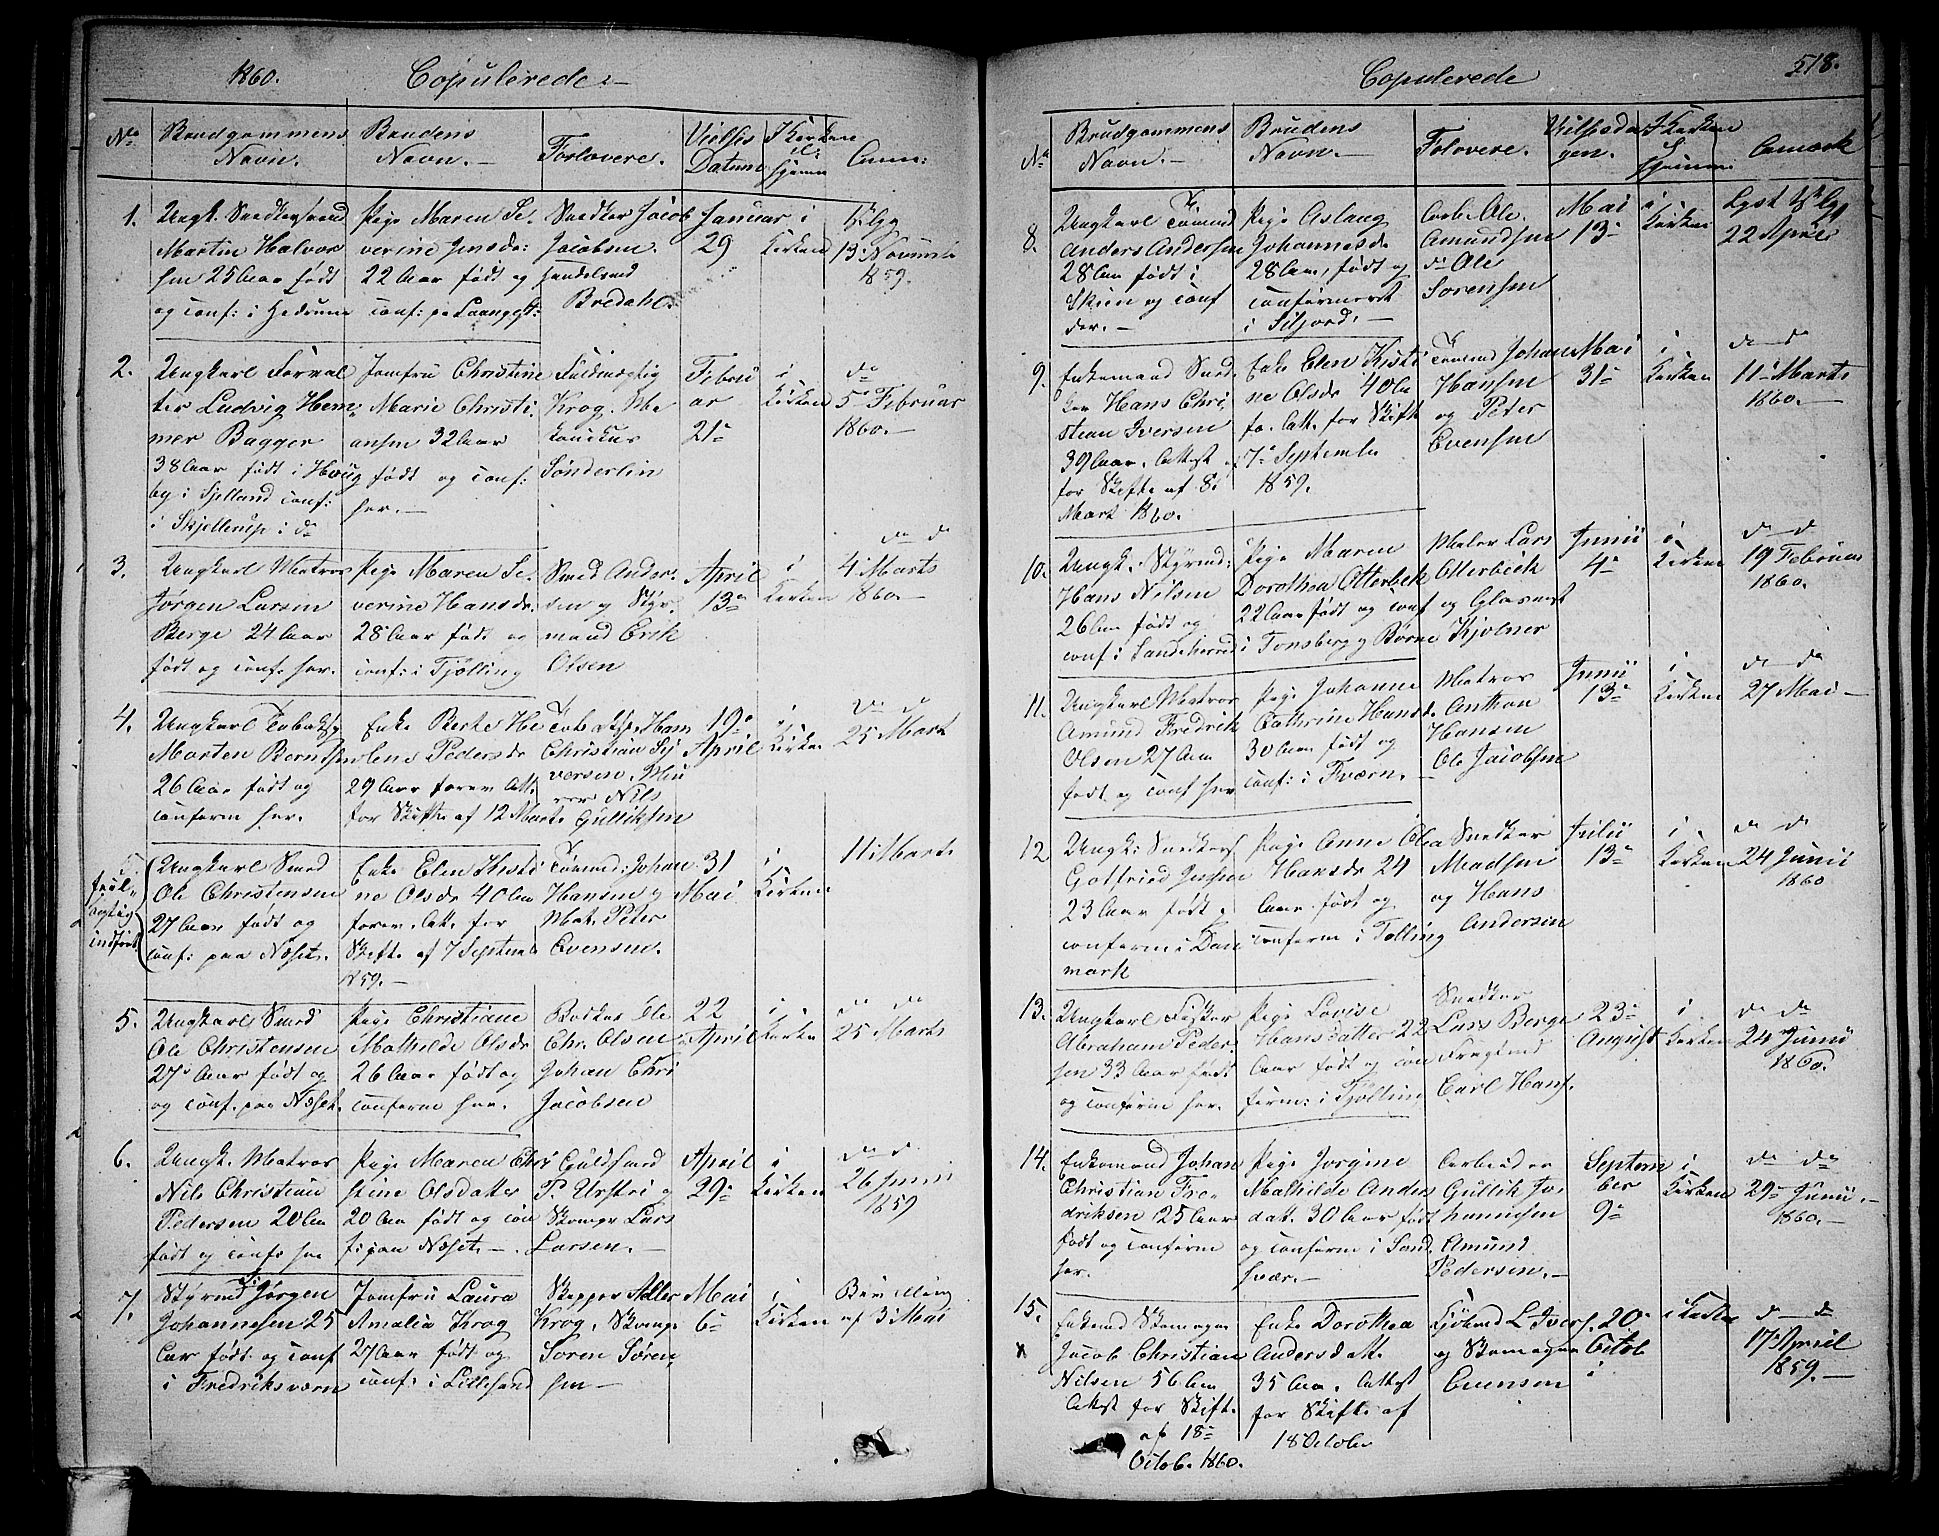 1860.
Copulerede.
No
Brudgommens Navn.
Brudens Navn.
Forlovere.
Vielses Datum
I Kirken el. hjemme
Anm:
1.
Ungk. Snedkersvend
Martin Halvor
sen 25 Aar født
og conf: i Hedrum
Pige Maren Se-
verine Jensd:
22 Aar født og
conf: pa Laangst:
Snedker Jacob
Jacobsen.
Handelsmd
Bredahl.
Januar
29
i
Kirken
13 Novemb
1859.
2.
Ungkarl Forval
ter Ludvig Hem
mer Bagger
38 Aar født i Houg
by i Sjelland conf:
i Skjellerup i do
Jomfru Christine
Marie Christi-
ansen 32 Aar
født og conf:
her.
Fuldmægtig
Krog.
Sønderlin
Febru
ar
21
i
Kirken
do
5 Februar
1860.
3.
Ungkarl Matros
Jørgen Larsen
Berge 24 Aar
født og conf. her.
Pige Maren Se-
verine Hansd.
28 Aar født og
conf: i Tjølling
Smed Ander-
sen og Styr-
mand Erik
Olsen
April
13
i
Kirken
do do
4 Marts
1860.
4.
Ungkarl Tobaksp
Morten Berntsen
26 Aar født og
conferm her.
Enke Berte He
lene Pedersd
29 Aar forev. Att.
for Skifte af 12 Marts
Christian
versen. Mu
rer Nils
Gulliksen
19
April
i
Kirken
do do
25 Mart
indført
Ungkarl Smed
Ole Christensen
27 Aar født og
conf: paa Næset.
Enke Elen Kisti
ne Olsd 40 Aar
forev. Att. for
Skifte af 7 Septemb
1859.
Tømmd: Johan
Hansen og
Mat. Peter
Evensen.
31
Mai
i
Kirken
11 Marts
5.
Ungkarl Smed
Ole Christensen
27 Aar født og
og conf. paa Næset.
Pige Christiane
Mathilde Olsd
26 Aar født og
conferm her.
Bødker Ole
Chr. Olsen
Johan Chri
Jacobsen
22
April
i
Kirken
do do
25 Marts
6.
Ungk. Matros
Nils Christian
Pedersen 20 Aar
født og conf: her
Pige Maren Chri
stine Olsdatter
20 Aar født og con
f: paa Næset.
Guldsmed
P. Urstri og
Skomgr Lars
Larsen.
April
29
i
Kirken
do do
26 Juni
1859
7.
Styrmd Jørgen
Johannesen 25
Aar født og conf
i Fredriksværn
Jomfru Laura
Amalia Krog
27 Aar født og
conf: i Lillesand
Skipper Adler
Krog, Skomgr
Søren Søren
sen
Mai
6
i
Kirken
Bevilling
af 3 Mai
Copulerede
518.
No
Brudgommens Navn.
Brudens Navn.
Folovere.
Vielseda gen.
I Kirken hjemme
Anmærk
8.
Ungkarl Tømmd
Anders Andersen
28 Aar født i
Skien og conf
der.
Pige Aslaug
Johannesd
28 Aar, født og
confermeret
i Siljord.
Arb. Ole
Amundsen
do Ole
Sørensen
Mai
13
i
Kirken
Lyst
22 April
9.
Enkemand Sned.
ker Hans Chri
stian Iversen
39 Aar. Attest
for Skifte af 8
Mart 1860.
Enke Elen Kisti
ne Olsd. 40 Aar
fo. Att. for Skifte
7 Septembr
1859.
Tømmd Johan
Hansen
og Peter
Evensen
Mai
31
i
Kirken
do d
11 Marts
1860.
10.
Ungk. Styrmd:
Hans Nilsen
26 Aar født og
conf i Sandeherred
Pige Maren
Dorothea Otterbek
22 Aar født og conf
i Tønsberg
Maler Lars
Otterbeck
og Glasmest
Børne Kjølner
Junii
4
i
Kirken
do d
19 Februar
1860.
11.
Ungkarl Matros
Amund Fredrik
Olsen 27 Aar
født og conf her
Pige Johanne
Cathrine Hansd.
30 Aar født og
conf: i Fværn.
Matros
Anthon
Hansen
Ole Jacobsen
Junii
13
i
Kirken
do do
27 Mai
12
Ungk: Snedkers
Gotfried Jensen
23 Aar født
conferm i Dan
mark
Pige Anne Olea
Hansd 24
Aar født og
conferm i Tølling
Snedker
Madsen
og Hans
Andersen
Julii
13
i
Kirken
do do
24 Junii
1860
13.
Ungkarl Fisker
Abraham Peder.
sen 33 Aar født
og conferm her.
Pige Lovise
Hansdatter 22
Aar født og con
ferm: i Tjølling
Snedker
Lars Berge
Carl Hans.
23
August
i
Kirken
do do
24 Junii
1860.
14.
Enkemand Johan
Christian Fre-
driksen 25 Aar
født og conferm
her.
Pige Jorgine
Mathilde Anders
datt. 30 Aar født
og conferm i Sand
svær.
Arbeider
Gullik Jo-
hannesen
Amund
Pedersen.
Septem
ber
9
i
Kirken
do do
29 Junii.
1860.
15.
x
Enkemd Skomager
Jacob Christian
Nilsen 56 Aar
Attest for Skifte
af 18
Octob. 1860.
Enke Dorothea
Andersdatt.
35 Aar. Attest
for Skifte af
18 October
Kjøbmd L Ivers.
og Skomager
Evensen
20
Octob
i Kirken
do do
17 April
1859.